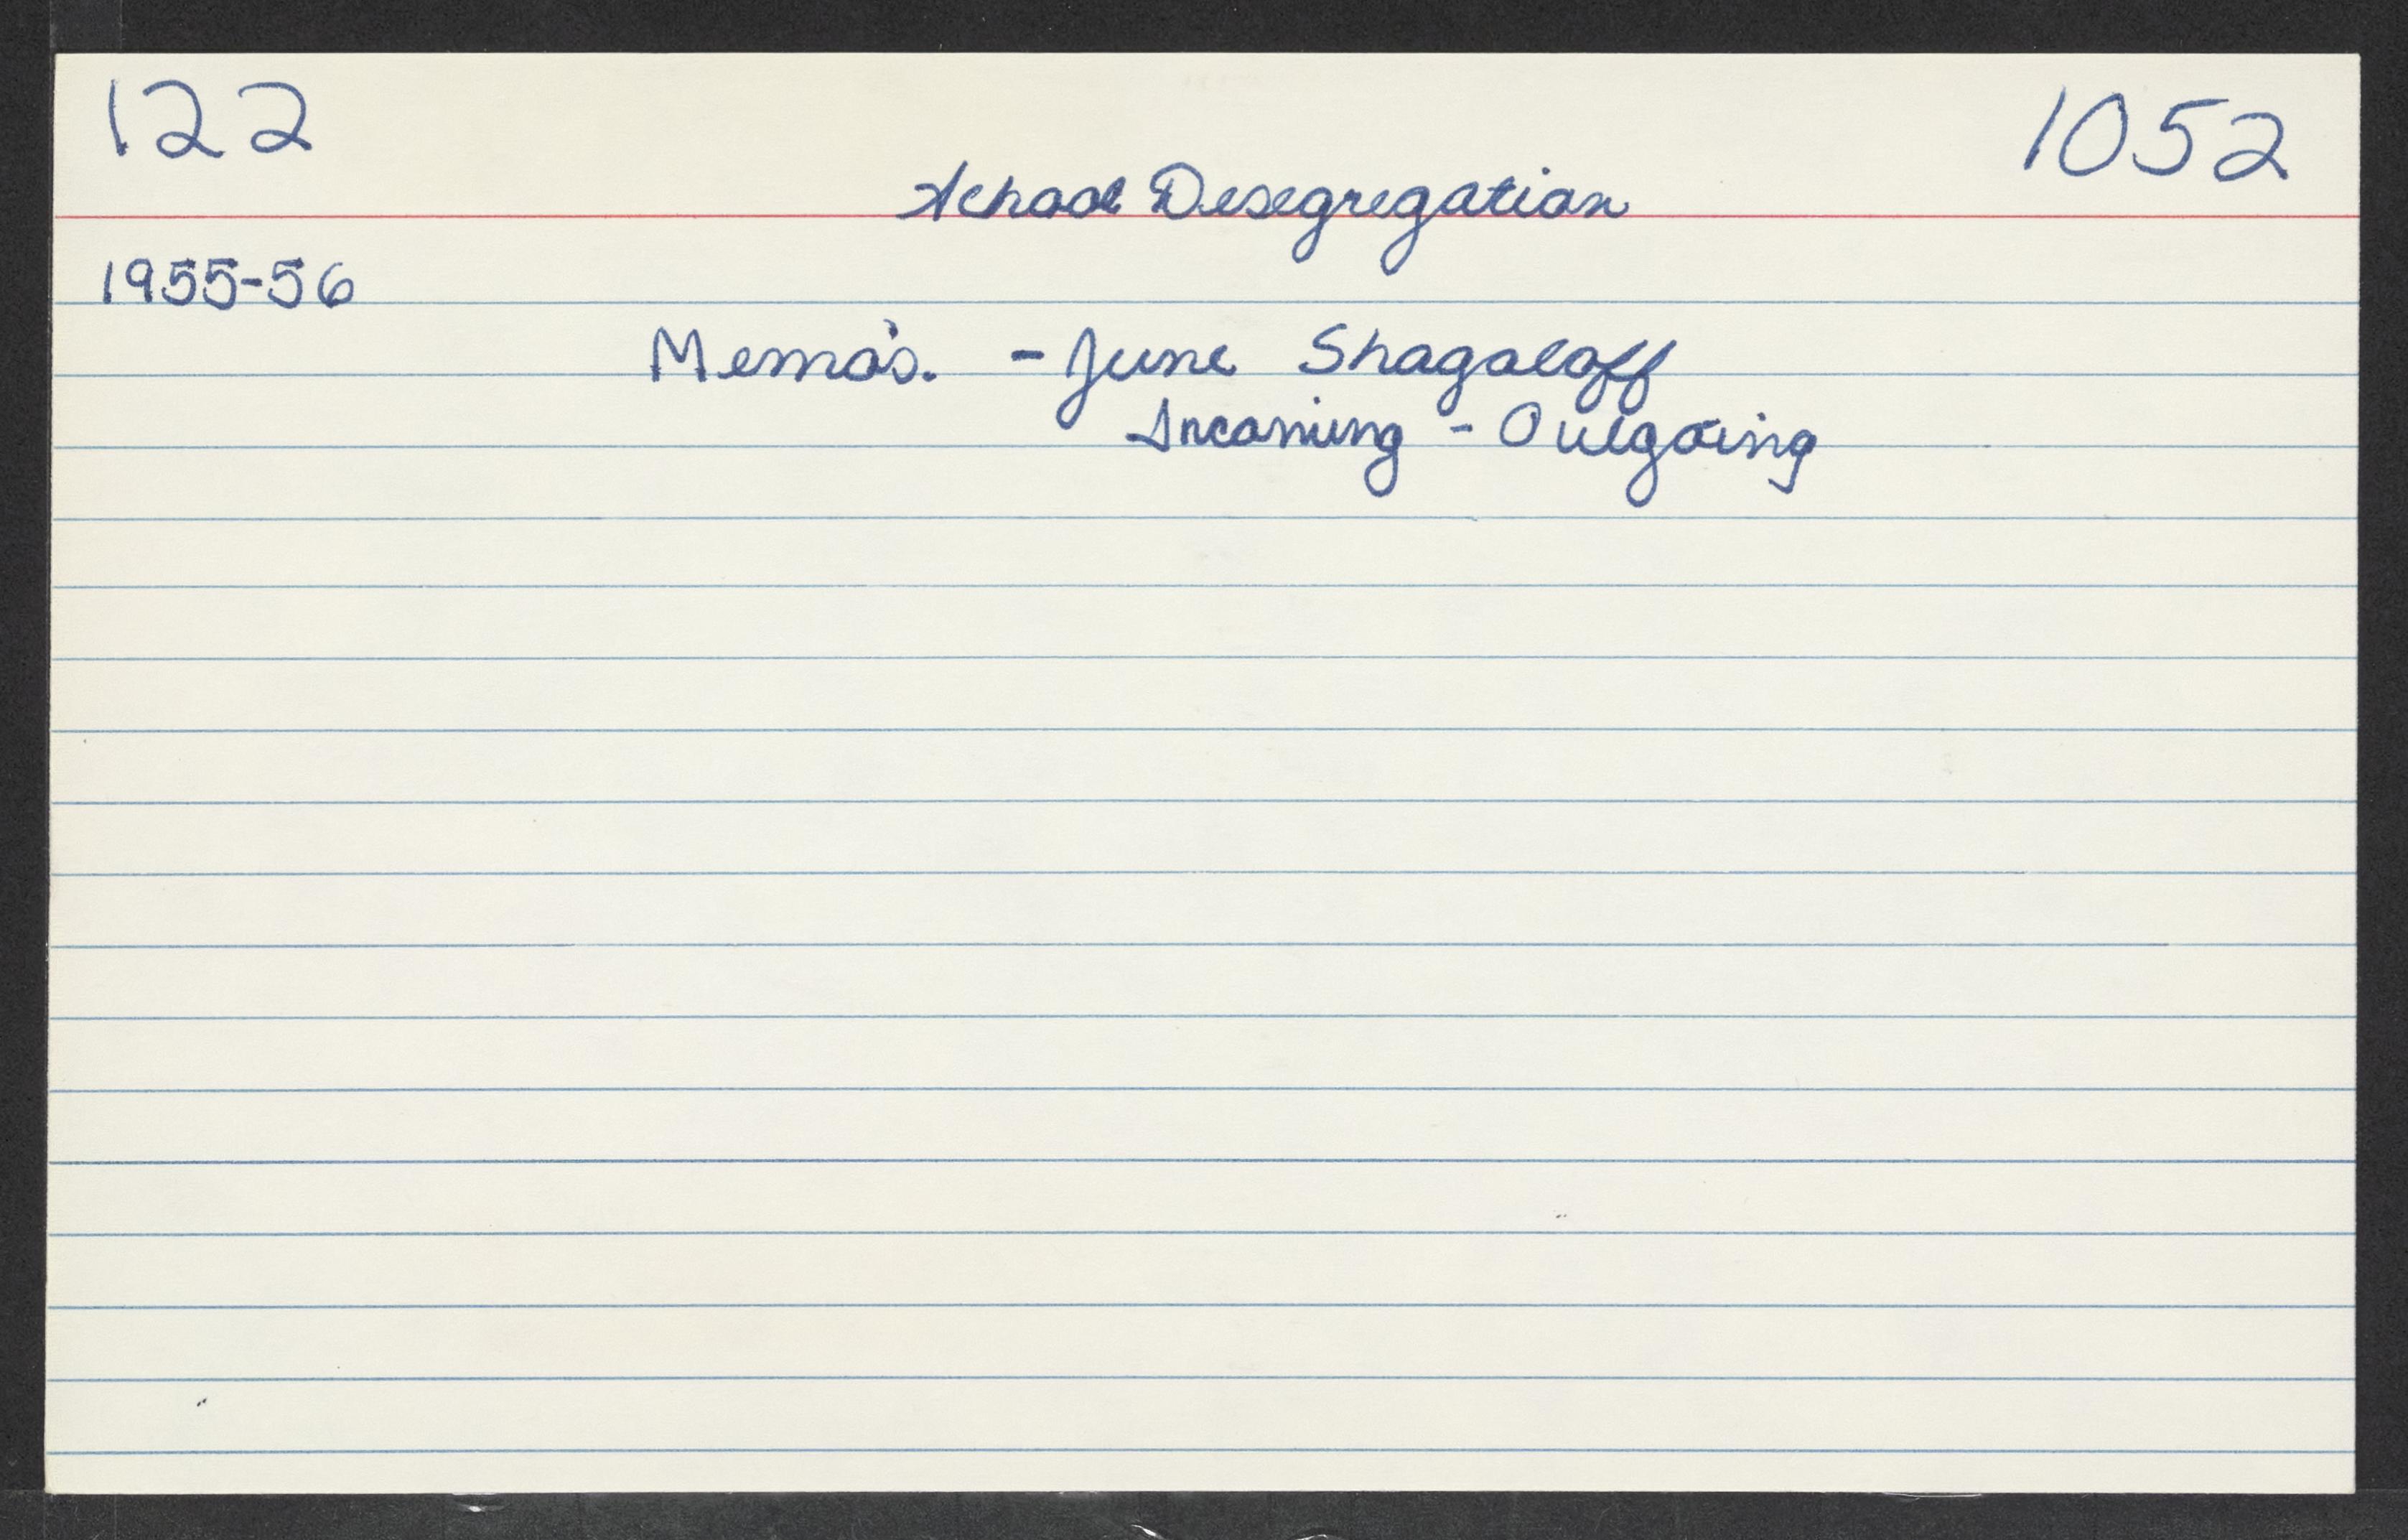 122 1052
School Desegregation
1955-56
Memo's. - June Shagaloff
Incoming - Outgoing